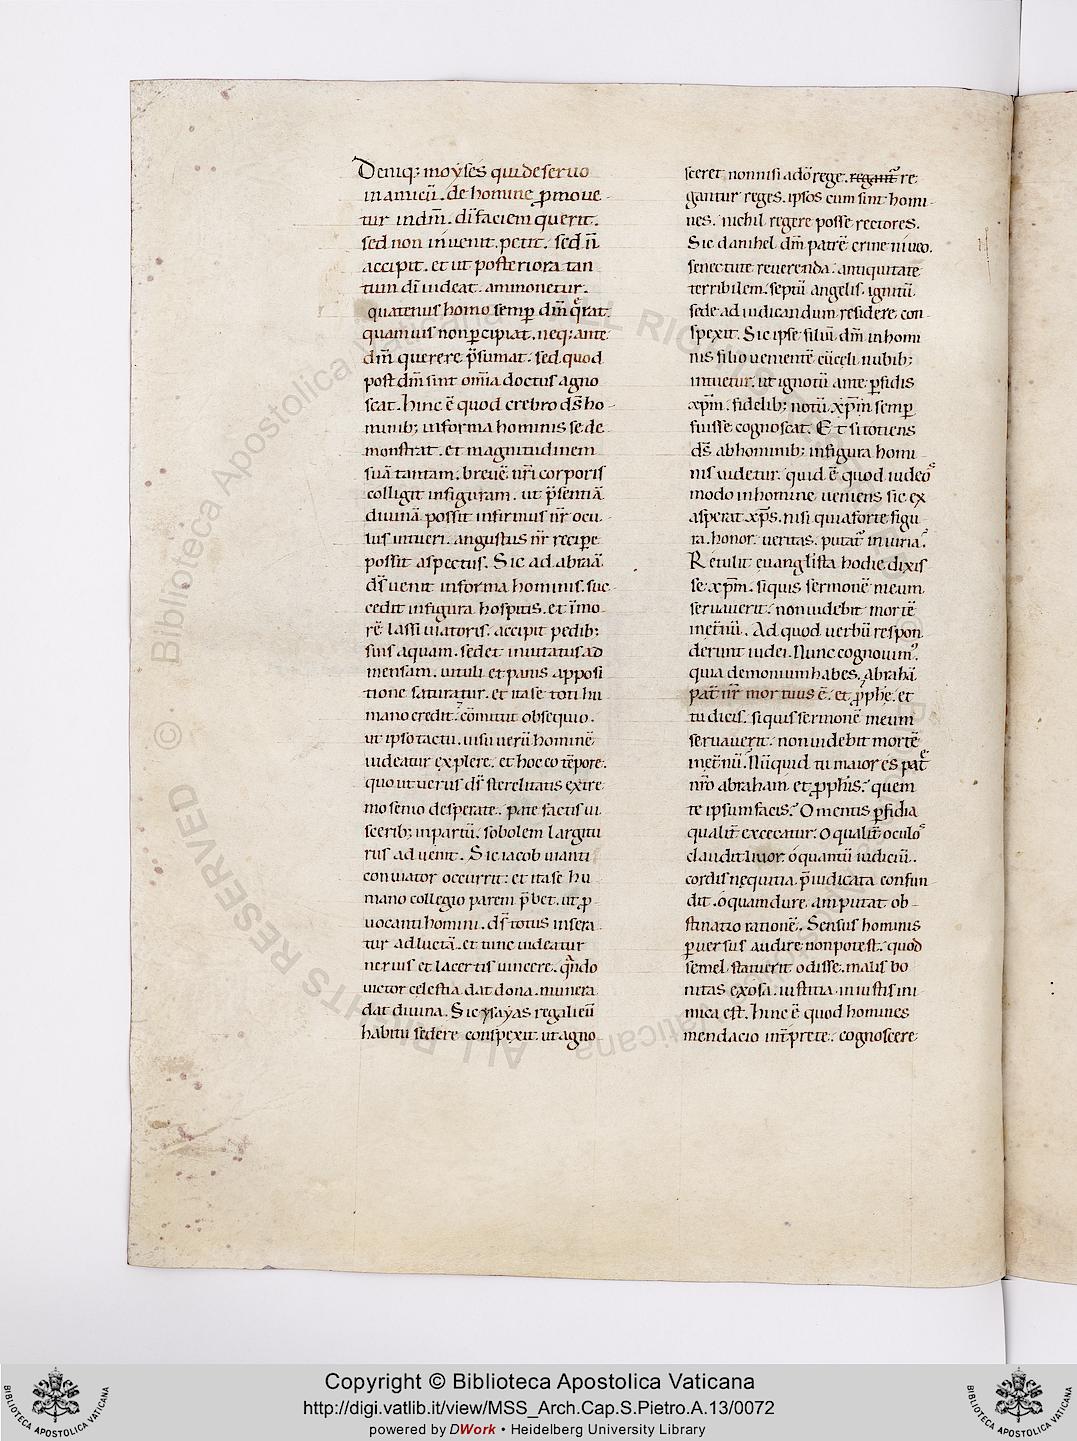 Deniq; moẏses qui de seruo
in amicū. de homine ꝓmoue
tur in dm̄. dī faciem querit.
sed non inuenit. petit. sed n̄
accipit. et ut posteriora tan
tum dī uideat. ammonetur.
quatenus homo semꝑ dm̄ q̄rat
quamuis non ꝑcipiat. neq; ante
dm̄ querere p̄sumat. sed quod
post dm̄ sint om̄ia doctus agno
scat. hinc ē quod crebro ds̄ ho
minib; in forma hominis se de
monstrat. et magnitudinem
suā tantam. breuē nr̄i corporis
colligit in figuram. ut p̄sentiā
diuinā possit infirmus nr̄ ocu
lus intueri. angustus nr̄ recipe
possit aspectus. Sic ad abraā
ds̄ uenit in forma hominis. suc
cedit in figura hospitis. et īmo
rē lassi uiatoris. accipit pedib;
suis aquam. sed et inuitatus ad
mensam. uituli et panis apposi
tione saturatur. et ita se toti hu
mano credit. cōmitit obsequio.
ut ipso tactu. uisu uerū hominē
uideatur explere. et hoc eo tēpore.
quo ut uerus ds̄ sterelitatis extre
mo senio desperate. patre factus ui
scerib; in partū. sobolem largitu
rus aduenit. Sic iacob uianti
conuiator occurrit: et ita se hu
mano collegio parem p̄bet. ut ꝓ
uocanti homini. ds̄ totus insera
tur ad luctā. et tunc uideatur
neruis et lacertis uincere. qn̄do
uictor celestia dat dona. munera
dat diuina. Sic ysaẏas regali eū
habitu sedere conspexit. ut agno
sceret non nisi a dō rege. regant᷑ re
gantur reges. ipsos cum sint homi
nes. nichil regere posse rectores.
Sic danihel dm̄ patrē crine niueo.
senectute reuerenda. antiquitate
terribilem. septū angelis. ignitū
sede ad iudicandum residere con
spexit. Sic ipse filiū dm̄ in homi
nis filio uenientē cū celi nubib;
intuetur. ut ignotū ante ꝑfidis
xp̄m. fidelib; notū xp̄m semꝑ
fuisse cognoscat. Et si totiens
ds̄ ab hominib; in figura homi
nis uidetur. quid ē quod iudeos
modo in homine ueniens sic ex
asperat xp̄s. nisi quia forte figu
ra. honor. ueritas. putat᷑ iniuria?
Retulit euanglista hodie. dixis
se xp̄m. siquis sermonē meum
seruauerit. non uidebit mortē
inet̄nū. Ad quod uerbū respon
derunt iudei. Nunc cognouim᷒.
quia demonium habes. abrahā
pat̄ nr̄ mortuus ē. et ꝓphe. et
tu dicis. siquis sermonē meum
seruauerit. non uidebit mortē
inet̄nū. Nūquid tu maior es pat̄e
nr̄o abraham et ꝓphis? quem
te ipsum facis? O mentis ꝑfidia
qualit̄ excecatur. O qualit̄ oculos
claudit liuor. ó quantū iudiciū.
cordis nequitia p̄iudicata confun
dit. ó quam dure. amputat ob
stinatio rationē. Sensus hominis
ꝑuersus audire non potest. quod
semel statuerit odisse. malis bo
nitas exosa. iustitia iniustis ini
mica est. hinc ē quod homines
mendacio int̄prete. cognoscere
Copyright © Biblioteca Apostolica Vaticana
http://digi.vatlib.it/view/MSS_Arch.Cap.S.Pietro.A.13/0072
powered by DWork • Heidelberg University Library